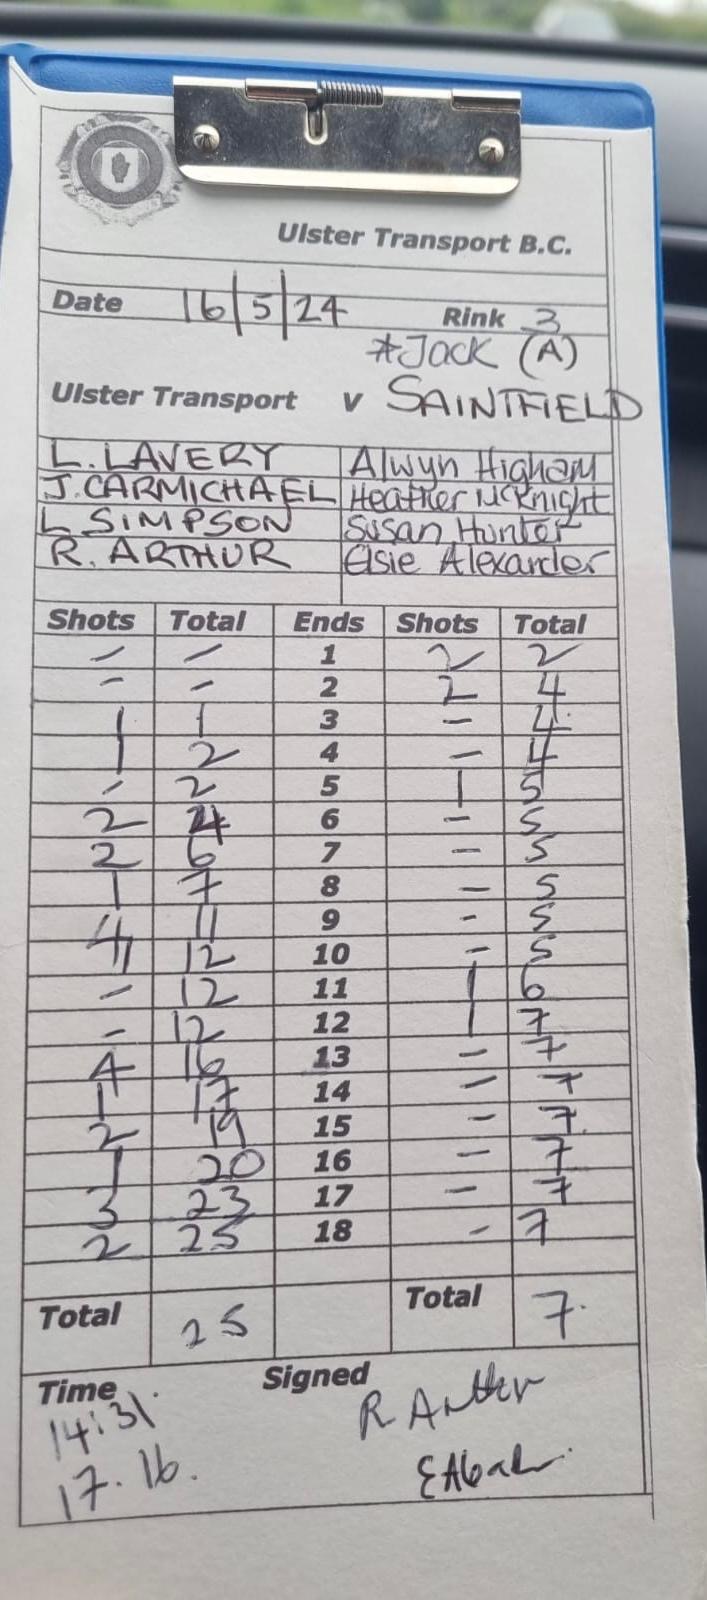 Ulster Transport B.C.
Date 16/5/24 Rink 3
*Jack (A)
Ulster Transport v SAINTFIELD
L. LAVERY Alwyn Higham
J. CARMICHAEL Heather McKnight
L SIMPSON Susan Hunter
R. ARTHUR Elsie Alexander
Shots Total Ends Shots Total
- - 1 2 2
- - 2 2 4
1 1 3 - 4
1 2 4 - 4
- 2 5 1 5
2 4 6 - 5
2 6 7 - 5
1 7 8 - 5
4 11 9 - 5
1 12 10 - 5
- 12 11 1 6
- 12 12 1 7
4 16 13 - 7
1 17 14 - 7
2 19 15 - 7
1 20 16 - 7
3 23 17 - 7
2 25 18 - 7
Total 25 Total 7.
Time Signed
14:31. R Arthur
17.16.